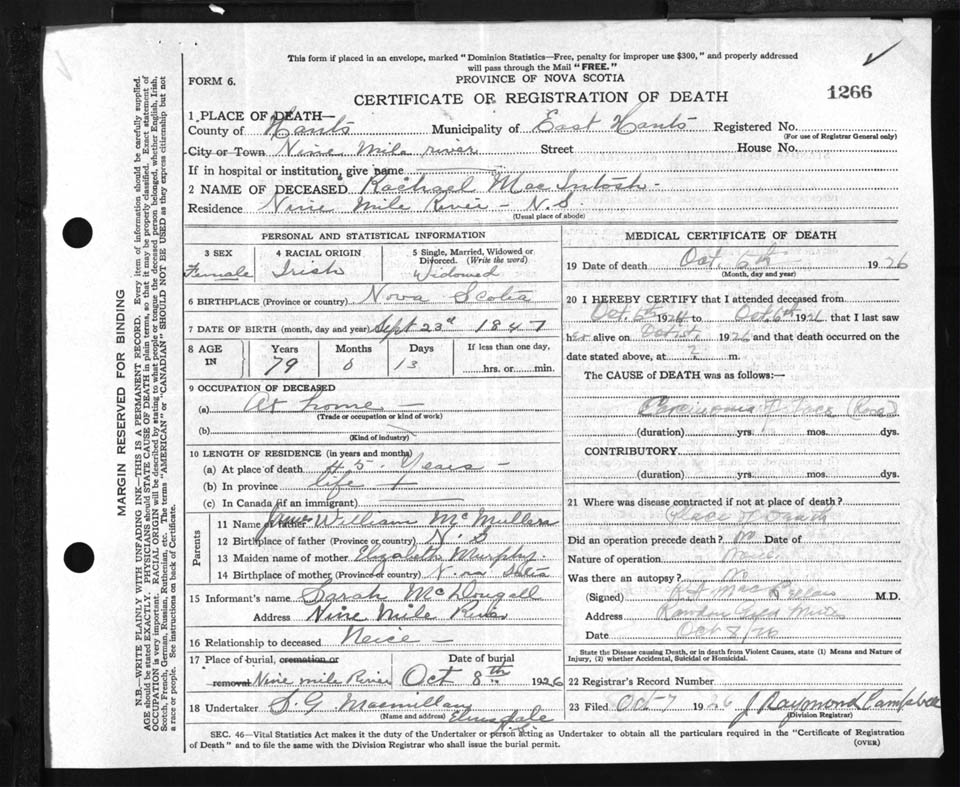 This form if placed in an envelope, marked "Dominion Statistics—Free, penalty for improper use $300," and properly addressed
will pass through the Mail "FREE."
FORM 6.
PROVINCE OF NOVA SCOTIA
CERTIFICATE OF REGISTRATION OF DEATH
1266
1 PLACE OF DEATH—
County of Hants Municipality of East Hants Registered No.
(For use of Registrar General only)
City or Town Nine Mile river Street House No.
If in hospital or institution, give name
2 NAME OF DECEASED Rachael MacIntosh -
Residence Nine Mile River - N.S.
(Usual place of abode)
PERSONAL AND STATISTICAL INFORMATION
3 SEX
Female
4 RACIAL ORIGIN
Irish
5 Single, Married, Widowed or
Divorced. (Write the word)
Widowed
6 BIRTHPLACE (Province or country) Nova Scotia
7 DATE OF BIRTH (month, day and year) Sept 23rd 1847
8 AGE IN
Years Months Days If less than one day,
79 0 13 hrs. or min.
9 OCCUPATION OF DECEASED
(a) At home -
(Trade or occupation or kind of work)
(b)
(Kind of industry)
10 LENGTH OF RESIDENCE (in years and months)
(a) At place of death 45 Years -
(b) In province life
(c) In Canada (if an immigrant)
Parents
11 Name of father William McMullen
12 Birthplace of father (Province or country) N.S
13 Maiden name of mother Elizabeth Murphy.
14 Birthplace of mother (Province or country) Nova Scotia
15 Informant's name Sarah McDougall
Address Nine Mile River
16 Relationship to deceased Neice -
17 Place of burial, cremation or Date of burial
removal Nine mile River Oct 8th 1926
18 Undertaker S.G Macmillan
(Name and address) Elmsdale
N.S.
MEDICAL CERTIFICATE OF DEATH
19 Date of death Oct. 6th 1926
(Month, day and year)
20 I HEREBY CERTIFY that I attended deceased from
Oct. 6th 1926 to Oct. 6th 1926, that I last saw
her alive on Oct 1st, 1926 and that death occurred on the
date stated above, at 2 m.
The CAUSE of DEATH was as follows:—
Carcinoma of face
(duration) yrs. mos. dys.
CONTRIBUTORY
(duration) yrs. mos. dys.
21 Where was disease contracted if not at place of death?
Place of Death
Did an operation precede death? no Date of
Nature of operation
Was there an autopsy? no
(Signed) M.D.
Address
Date Oct 8/26
State the Disease causing Death, or in death from Violent Causes, state (1) Means and Nature of
Injury, (2) whether Accidental, Suicidal or Homicidal.
22 Registrar's Record Number
23 Filed, Oct-7 1926 J Raymond Campbell
(Division Registrar)
SEC. 46—Vital Statistics Act makes it the duty of the Undertaker or person acting as Undertaker to obtain all the particulars required in the "Certificate of Registration
of Death" and to file the same with the Division Registrar who shall issue the burial permit.
(OVER)
MARGIN RESERVED FOR BINDING
N.B.—WRITE PLAINLY WITH UNFADING INK—THIS IS A PERMANENT RECORD. Every item of information should be carefully supplied.
AGE should be stated EXACTLY. PHYSICIANS should STATE CAUSE OF DEATH in plain terms, so that it may be properly classified. Exact statement of
OCCUPATION is very important. RACIAL ORIGIN will be described by stating to what people or tongue the deceased person belonged, whether English, Irish,
Scotch, French, German, Russian, Ruthenian, etc. The terms "AMERICAN" or "CANADIAN" SHOULD NOT BE USED as they express citizenship but not
a race or people. See instructions on back of Certificate.